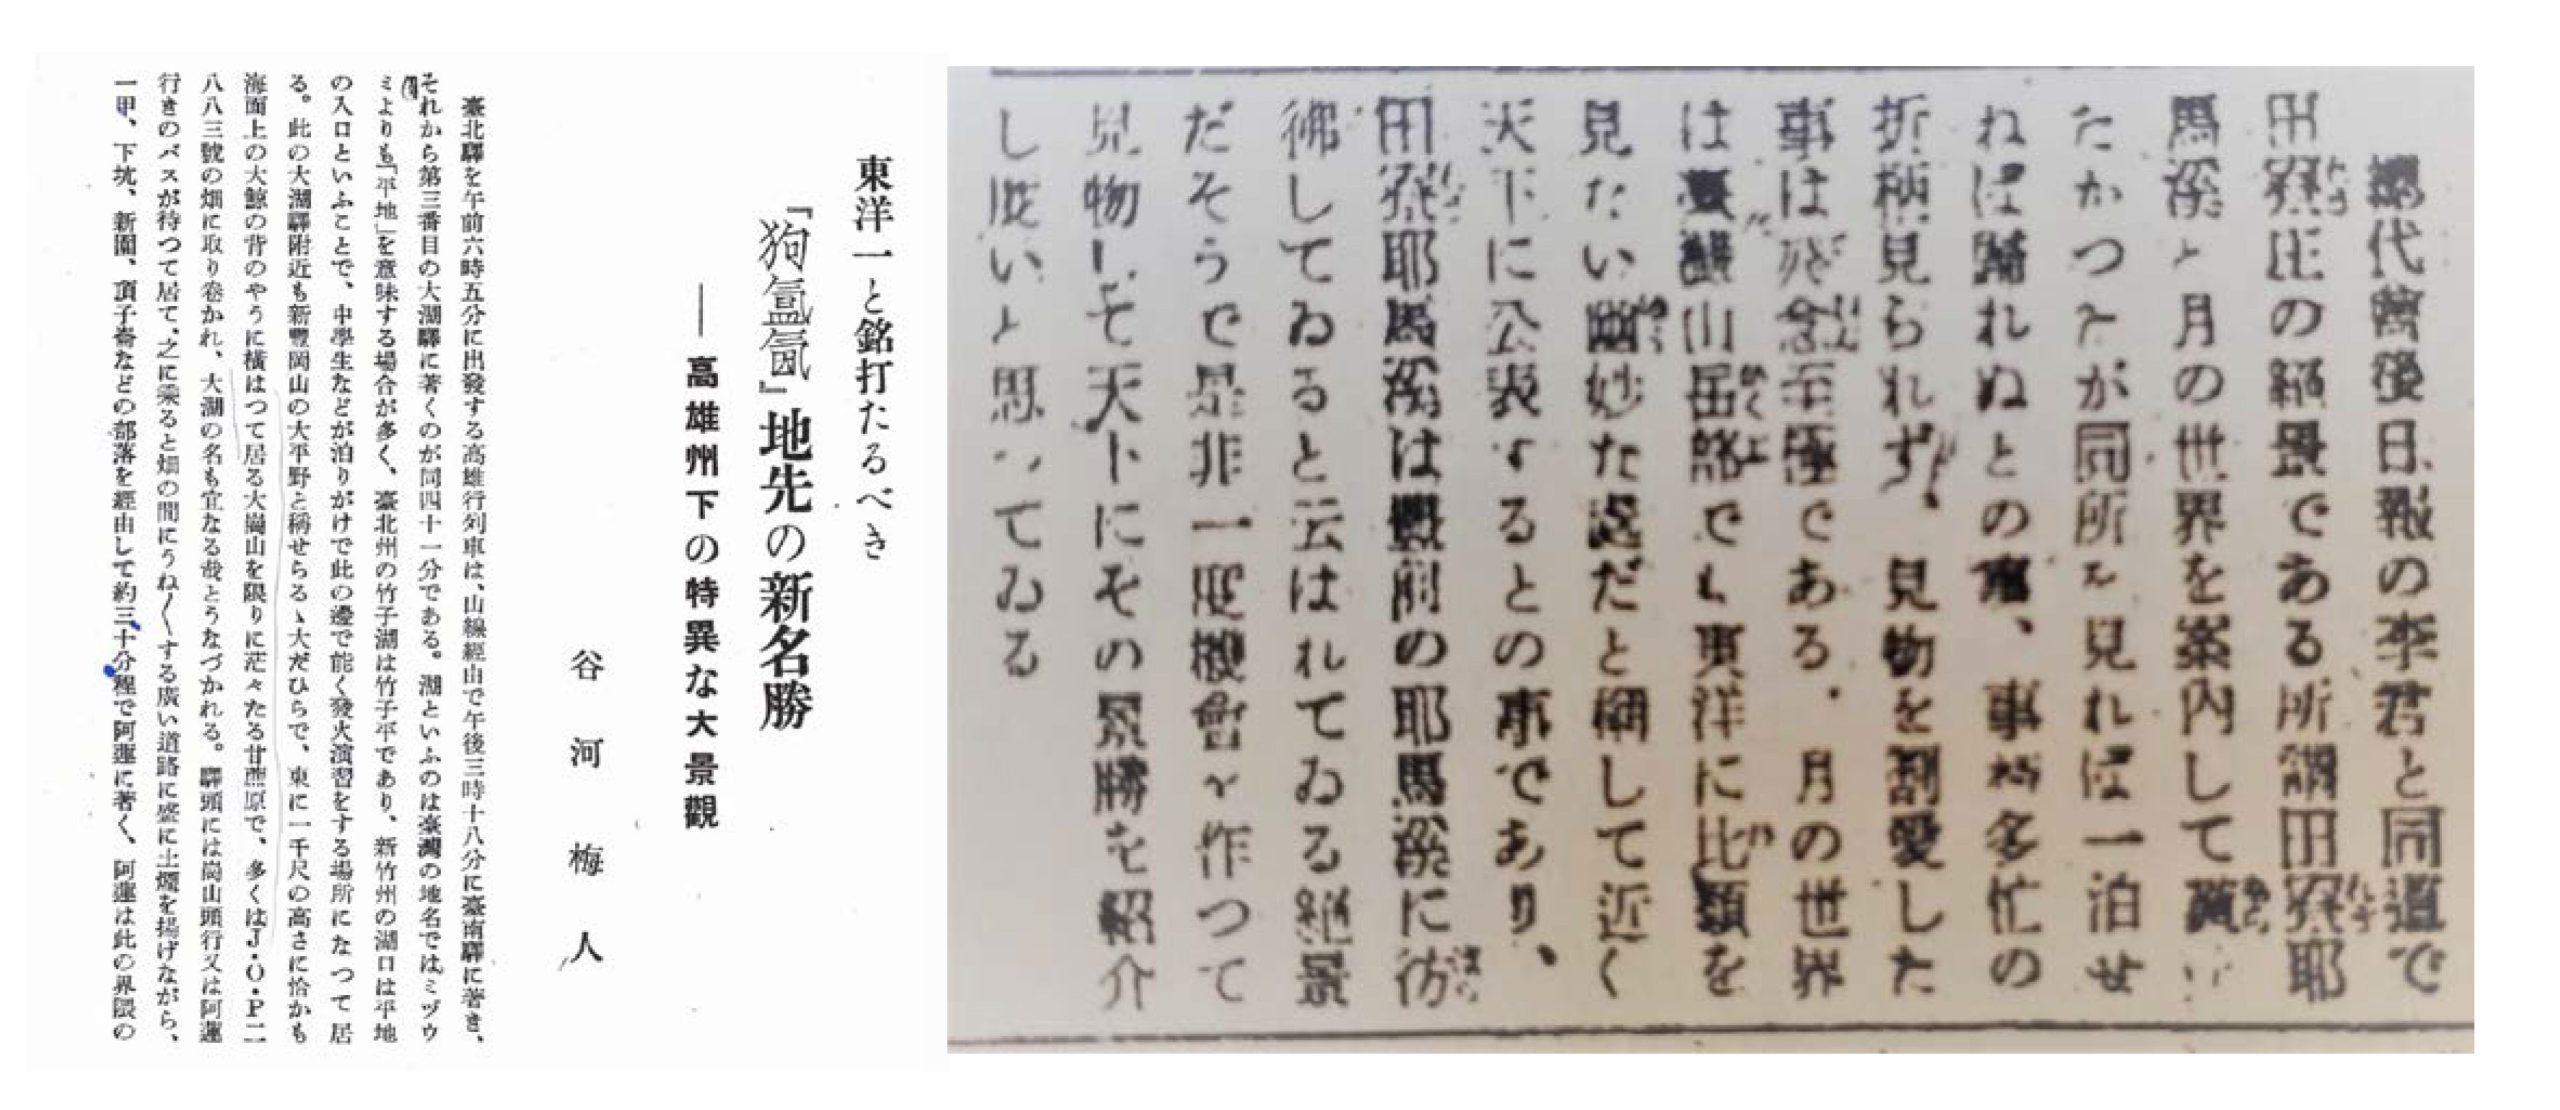 東洋一と銘打たるべき
『狗氲氤』地先の新名勝
──高雄州下の特異な大景觀
谷河梅人
臺北驛を午前六時五分に出發する高雄行列車は、山線經由で午後三時十八分に臺南驛に著き、
それから第三番目の大湖驛に著くのが同四十一分である。湖といふのは臺灣の地名ではミヅウ
ミよりも「平地」を意味する場合が多く、臺北州の竹子湖は竹子平であり、新竹州の湖口は平地
の入口といふことで、中學生などが泊りがけで此の邊で能く發火演習をする場所になつて居
る。此の大湖驛附近も新豐岡山の大平野と稱せらるゝ大だひらで、東に一千尺の高さに恰かも
海面上の大鯨の背のやうに横はつて居る大崗山を限りに茫々たる甘蔗原で、多くはJ・O・P二
八八三號の畑に取り卷かれ、大湖の名も宜なる哉とうなづかれる。驛頭には崗山頭行又は阿蓮
行きのバスが待つて居て、之に乘ると畑の間にうね〱する廣い道路に盛に土煙を揚げながら、
一甲、下坑、新園、頂子崙などの部落を經由して約三十分程で阿蓮に著く、阿蓮は此の界隈の
總代萬後日報の李君と同道で
田寮庄の絕景である所謂田寮耶
馬溪と月の世界を案內して貰い
たかつたが同所を見れば一泊せ
ねば歸れぬとの事、事務多忙の
折柄見られず、見物を割愛した
事は殘念至極である．月の世界
は臺灣山岳路でも東洋に比類を
見たい幽妙た處だと稱して近く
天下に公表するとの事であり、
田寮耶馬溪は豐前の耶馬溪に彷
彿してゐると云はれてゐる絕景
だそうで是非一度機會を作つて
見物して天下にその景勝を紹介
し度いと思つてゐる